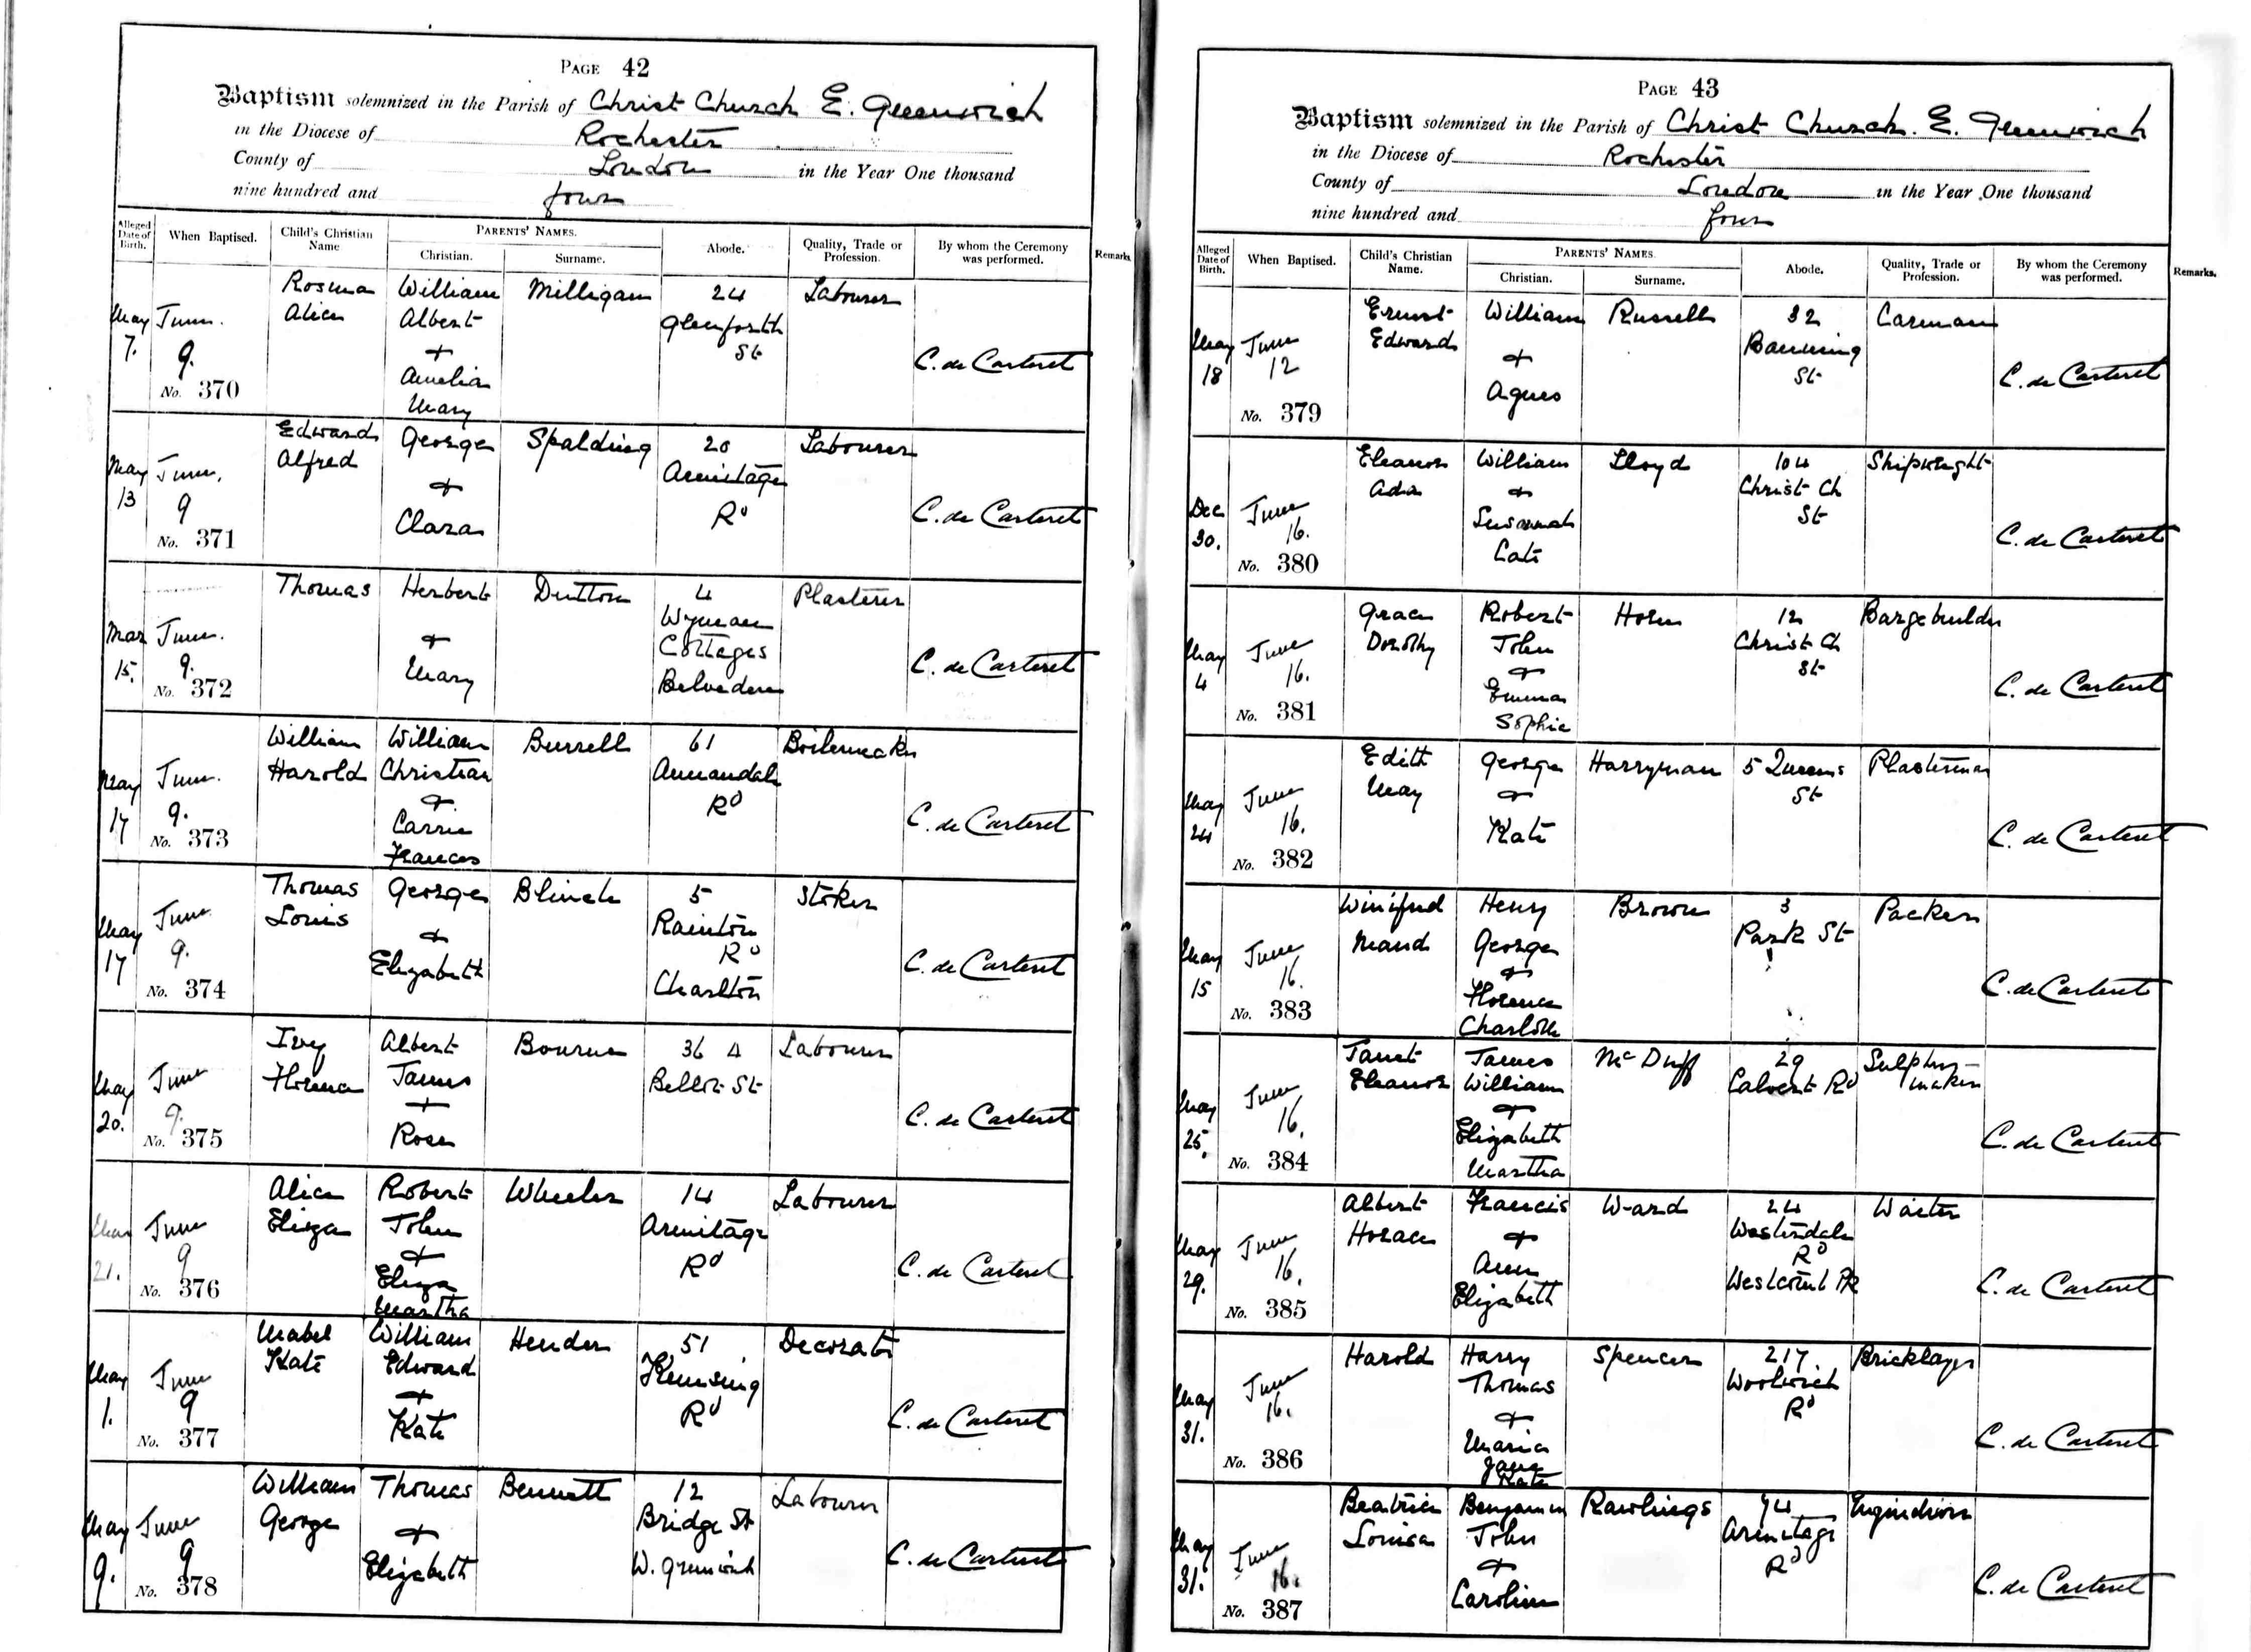 PAGE 42
Baptism solemnized in the Parish of Christ Church E. Greenwich
in the Diocese of Rochester
County of London in the Year One thousand
nine hundred and four
Alleged Date of Birth. When Baptised. Child's Christian Name PARENTS' NAMES. Christian. Surname. Abode. Quality, Trade or Profession. By whom the Ceremony was performed. Remarks
May 7. June. 9. No. 370 Rosina Alice William Albert + Amelia Mary Milligan 24 Glenforth St Labourer C. de Carteret
May 13 June. 9 No. 371 Edward Alfred George + Clara Spalding 20 Armitage Rd Labourer C. de Carteret
Mar 15. June. 9. No. 372 Thomas Herbert + Mary Dutton 4 Wyman Cottages Belvedere Plasterer C. de Carteret
May 17 June. 9. No. 373 William Harold William Christian + Carrie Frances Burrell 61 Annandale Rd Boilermaker C. de Carteret
May 17 June 9. No. 374 Thomas Louis George + Elizabeth Blinch 5 Rainton Rd Charlton Stoker C. de Carteret
May 20. June 9. No. 375 Ivy Florence Albert James + Rose Bourne 36 A Bellot St Labourer C. de Carteret
May 21. June 9 No. 376 Alice Eliza Robert John + Eliza Martha Wheeler 14 Armitage Rd Labourer C. de Carteret
May 1. June 9 No. 377 Mabel Kate William Edward + Kate Hender 51 Kemsing Rd Decorator C. de Carteret
May 9. June 9 No. 378 William George Thomas + Elizabeth Bennett 12 Bridge St W. Greenwich Labourer C. de Carteret
PAGE 43
Baptism solemnized in the Parish of Christ Church. E. Greenwich
in the Diocese of Rochester
County of London in the Year One thousand
nine hundred and four
Alleged Date of Birth. When Baptised. Child's Christian Name. PARENTS' NAMES. Christian. Surname. Abode. Quality, Trade or Profession. By whom the Ceremony was performed. Remarks.
May 18 June 12 No. 379 Ernest Edward William + Agnes Russell 32 Banning St Carman C. de Carteret
Dec 30. June 16. No. 380 Eleanor Ada William + Susannah Cate Lloyd 104 Christ Ch St Shipwright C. de Carteret
May 4 June 16. No. 381 Grace Dorothy Robert John + Emma Sophie Horn 12 Christ Ch St Bargebuilder C. de Carteret
May 24 June 16. No. 382 Edith May George + Kate Harryman 5 Queens St Plasterman C. de Carteret
May 15 June 16. No. 383 Winifred Maud Henry George + Florence Charlotte Brown 3 Park St Packer C. de Carteret
May 25. June 16. No. 384 Janet Eleanor James William + Elizabeth Martha McDuff 29 Calvert Rd Sulphur maker C. de Carteret
May 29. June 16. No. 385 Albert Horace Francis + Ann Elizabeth Ward 24 Westerdale Rd Westcombe Pk Waiter C. de Carteret
May 31. June 16. No. 386 Harold Harry Thomas + Maria Jane Kate Spencer 217. Woolwich Rd Bricklayer C. de Carteret
May 31. June 16. No. 387 Beatrice Louisa Benjamin John + Caroline Rawlings 74 Armitage Rd Enginedriver C. de Carteret